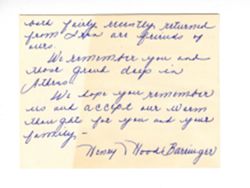 both fairly recently returned
from Iran are friends of
ours.
We remember you and
those grand days in
Athens.
We hope you remember
us and accept our warm
thoughts for you and your
family. —
Henry Barringer